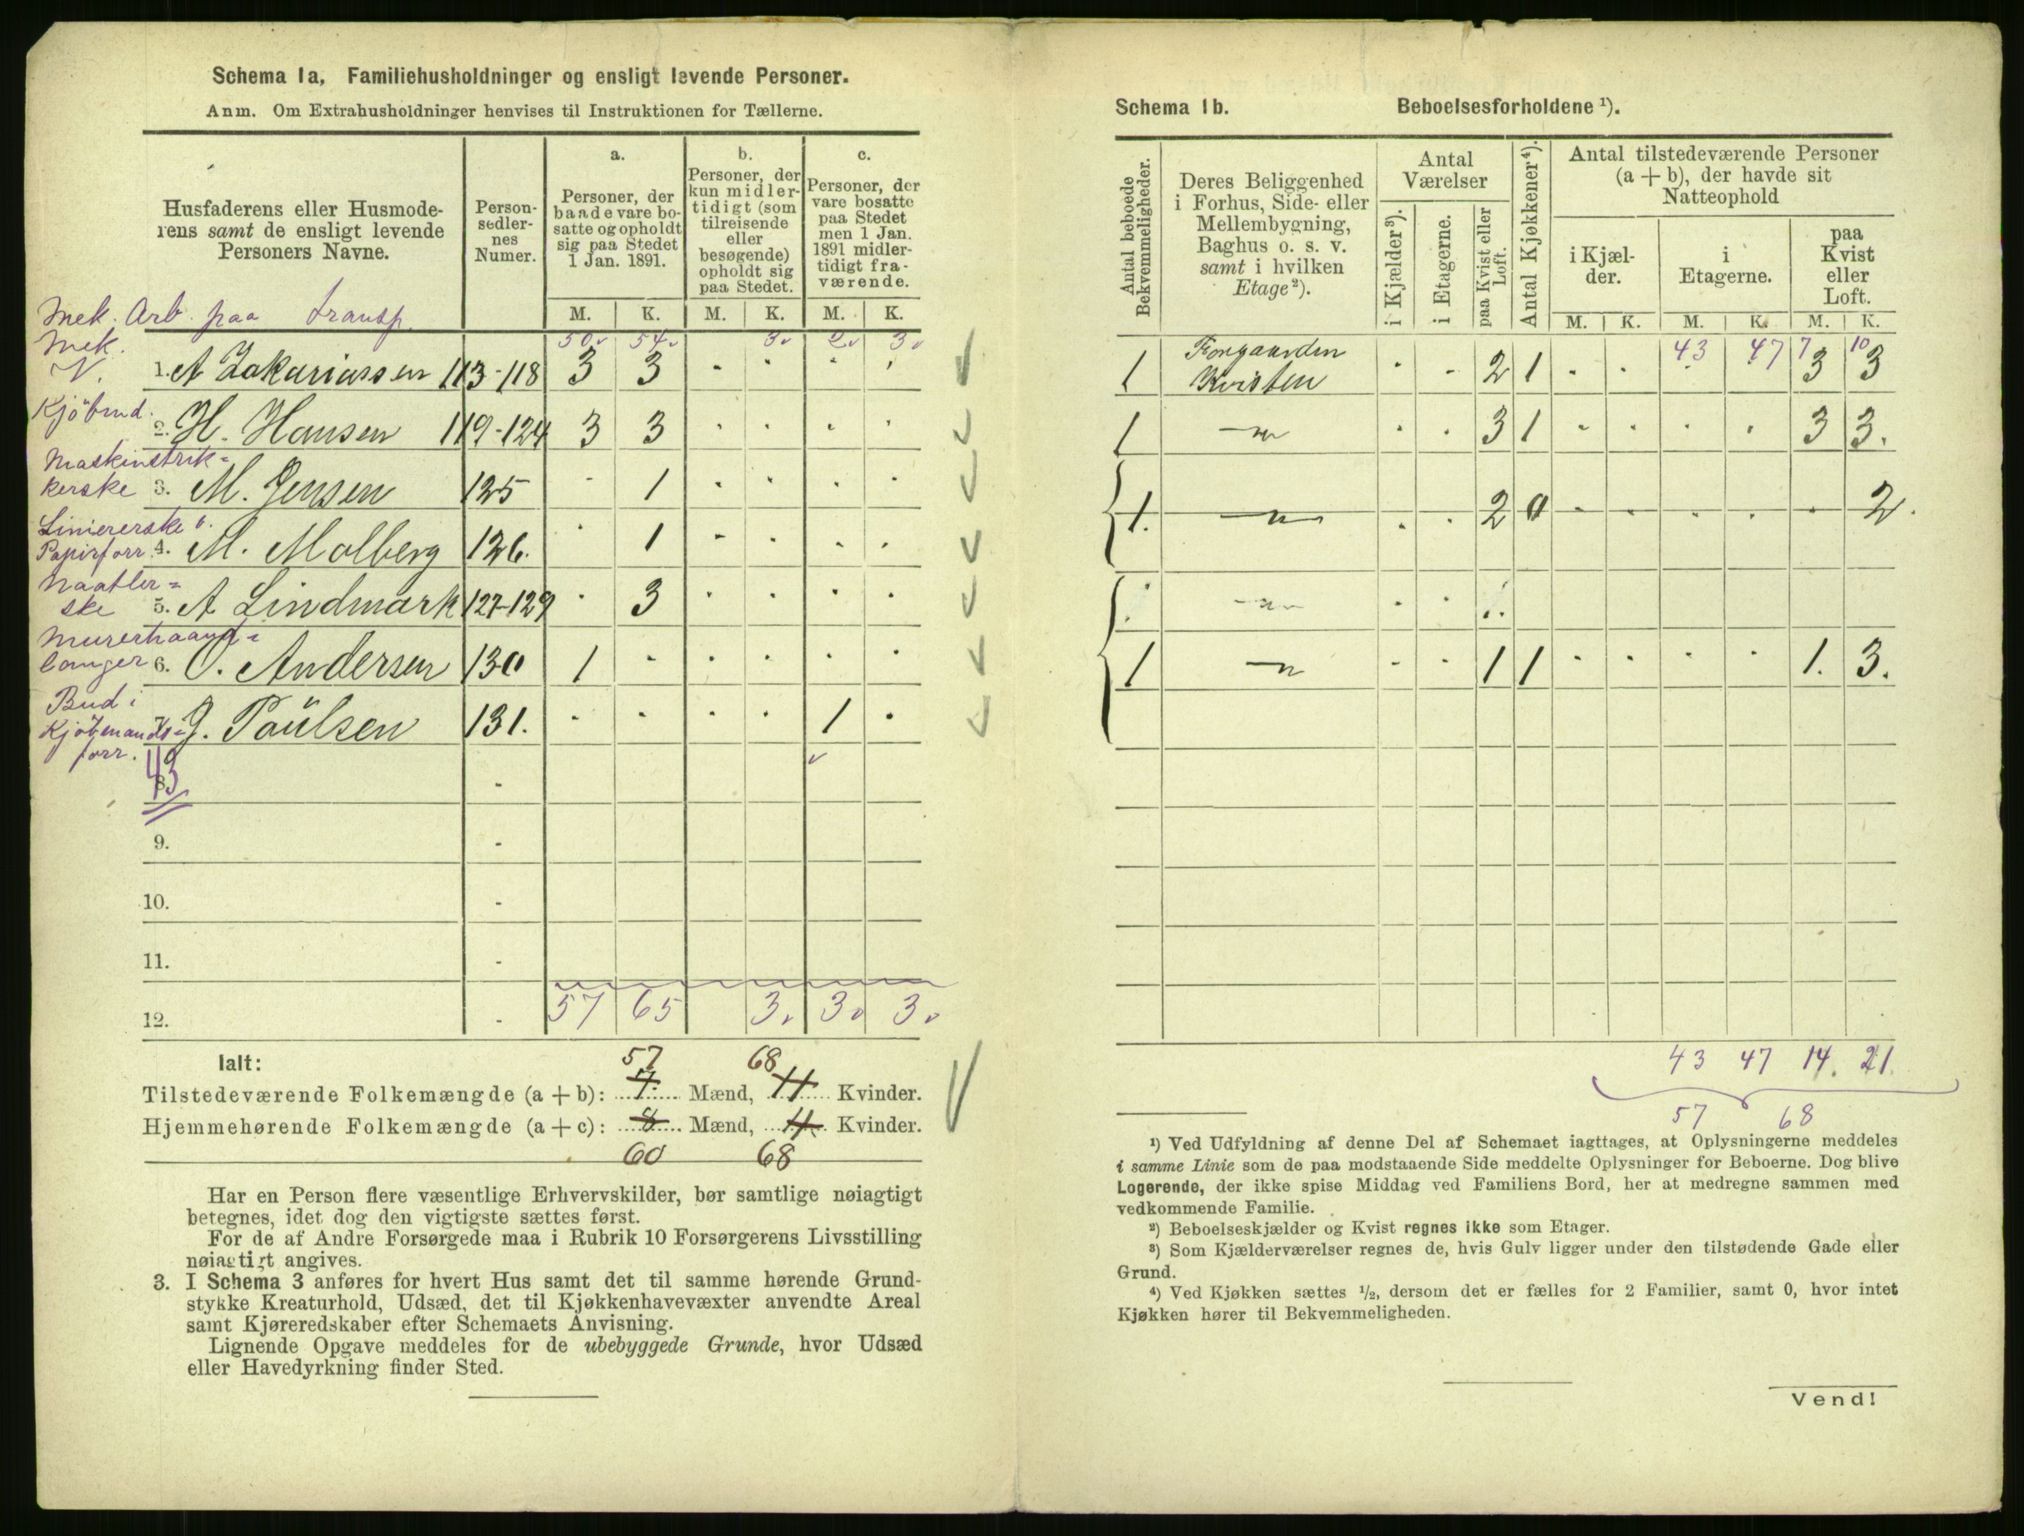 Schema 1a. Familiehusholdninger og ensligt levende Personer.
Anm. Om Extrahusholdninger henvises til Instruktionen for Tællerne.
Husfaderens eller Husmoderens samt de ensligt levende Personers Navne.
Person-sedlernes Numer.
a. Personer, der baade vare bosatte og opholdt sig paa Stedet 1 Jan. 1891.
b. Personer, der kun midlertidigt (som tilreisende eller besøgende) opholdt sig paa Stedet.
c. Personer, der vare bosatte paa Stedet men 1 Jan. 1891 midlertidigt fraværende.
M. K. M. K. M. K.
Mek. Arb. paa Transp. 50 54 3 2 3
Mek. V. 1. A Zakariassen 113-118 3 3 · · · ·
Kjöbmd. 2. H. Hansen 119-124 3 3 · · · ·
Maskinstrikkerske 3. M. Jensen 125 - 1 · · · ·
Liniererske i Papirforr. 4. M. Molberg 126. · 1 · · · ·
Naatlerske 5. A Lindmark 127-129 · 3 · · · ·
Murerhaandlanger 6. O. Andersen 130 1 · · · · ·
Bud i Kjöbmandsforr. 7. J. Paulsen 131. · · · · 1 ·
8.
9.
10.
11.
12. 57 65 3 3 3
Ialt:
57 68
Tilstedeværende Folkemængde (a + b): 7 Mænd, 11 Kvinder.
Hjemmehørende Folkemængde (a + c): 8 Mænd, 11 Kvinder.
60 68
Har en Person flere væsentlige Erhvervskilder, bør samtlige nøiagtigt
betegnes, idet dog den vigtigste sættes først.
For de af Andre Forsørgede maa i Rubrik 10 Forsørgerens Livsstilling
nøiagtigt angives.
3. I Schema 3 anføres for hvert Hus samt det til samme hørende Grund-
stykke Kreaturhold, Udsæd, det til Kjøkkenhavevæxter anvendte Areal
samt Kjøreredskaber efter Schemaets Anvisning.
Lignende Opgave meddeles for de ubebyggede Grunde, hvor Udsæd
eller Havedyrkning finder Sted.
Schema 1b. Beboelsesforholdene ¹).
Antal beboede Bekvemmeligheder.
Deres Beliggenhed i Forhus, Side- eller Mellembygning, Baghus o. s. v. samt i hvilken Etage ²).
Antal Værelser
i Kjælder ³).
i Etagerne.
paa Kvist eller Loft.
Antal Kjøkkener ⁴).
Antal tilstedeværende Personer (a + b), der havde sit Natteophold
i Kjælder.
i Etagerne.
paa Kvist eller Loft.
M. K. M. K. M. K.
43 47 7 10
1 Forgaarden Kvisten · · 2 1 · · · 3 3
1 -"- · · 3 1 · · · · 3 3.
1. -"- · · 2 0 · · · · · 2.
-"- · ·
1 -"- · · 1 1 · · · · 1. 3.
43 47 14. 21.
57 68
¹) Ved Udfyldning af denne Del af Schemaet iagttages, at Oplysningerne meddeles
i samme Linie som de paa modstaaende Side meddelte Oplysninger for Beboerne. Dog blive
Logerende, der ikke spise Middag ved Familiens Bord, her at medregne sammen med
vedkommende Familie.
²) Beboelseskjælder og Kvist regnes ikke som Etager.
³) Som Kjælderværelser regnes de, hvis Gulv ligger under den tilstødende Gade eller
Grund.
⁴) Ved Kjøkken sættes ½, dersom det er fælles for 2 Familier, samt 0, hvor intet
Kjøkken hører til Bekvemmeligheden.
Vend!